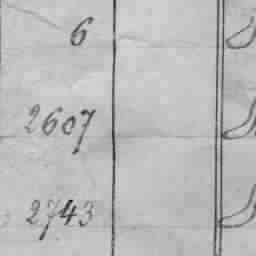 6
2607
2743